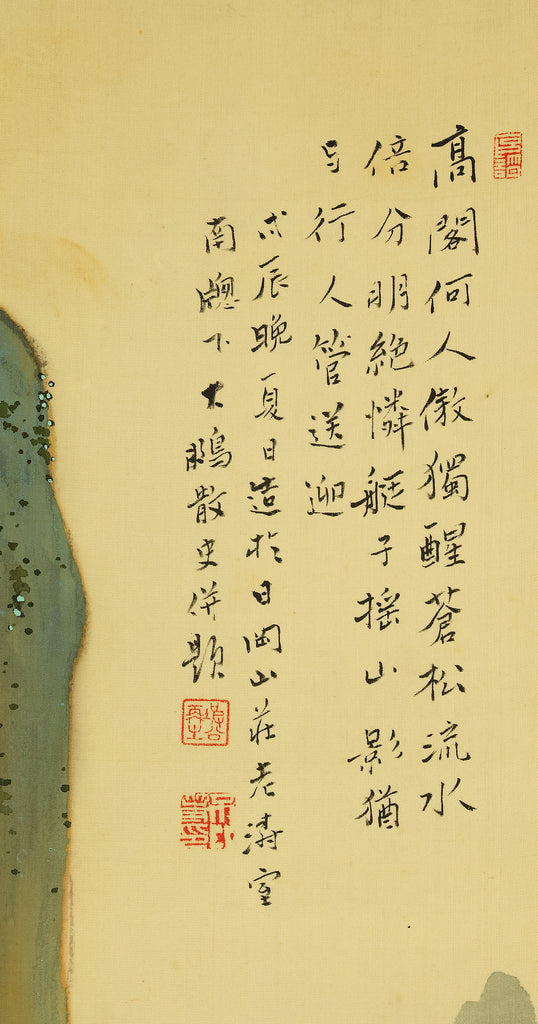 高閣何人傲獨醒蒼松流水
倍分明絶憐艇子搖山影猶
与行人管送迎
戊辰晚夏日造於日岡山莊老濤室
南窻下大鵬散史併題